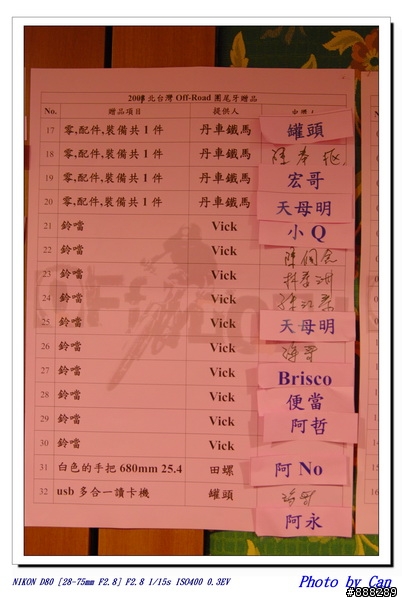 2008 北台灣 Off-Road 團尾牙贈品
No. 贈品項目 提供人
17 零,配件,裝備共 1 件 丹車鐵馬 罐頭
18 零,配件,裝備共 1 件 丹車鐵馬
19 零,配件,裝備共 1 件 丹車鐵馬 宏哥
20 零,配件,裝備共 1 件 丹車鐵馬 天母明
21 鈴噹 Vick 小 Q
22 鈴噹 Vick
23 鈴噹 Vick
24 鈴噹 Vick
25 鈴噹 Vick 天母明
26 鈴噹 Vick
27 鈴噹 Vick Brisco
28 鈴噹 Vick 便當
29 鈴噹 Vick 阿哲
30 鈴噹 Vick
31 白色的手把 680mm 25.4 田螺 阿 No
32 usb 多合一讀卡機 罐頭
阿永
NIKON D80 [28-75mm F2.8] F2.8 1/15s ISO400 0.3EV
Photo by Can
#888289